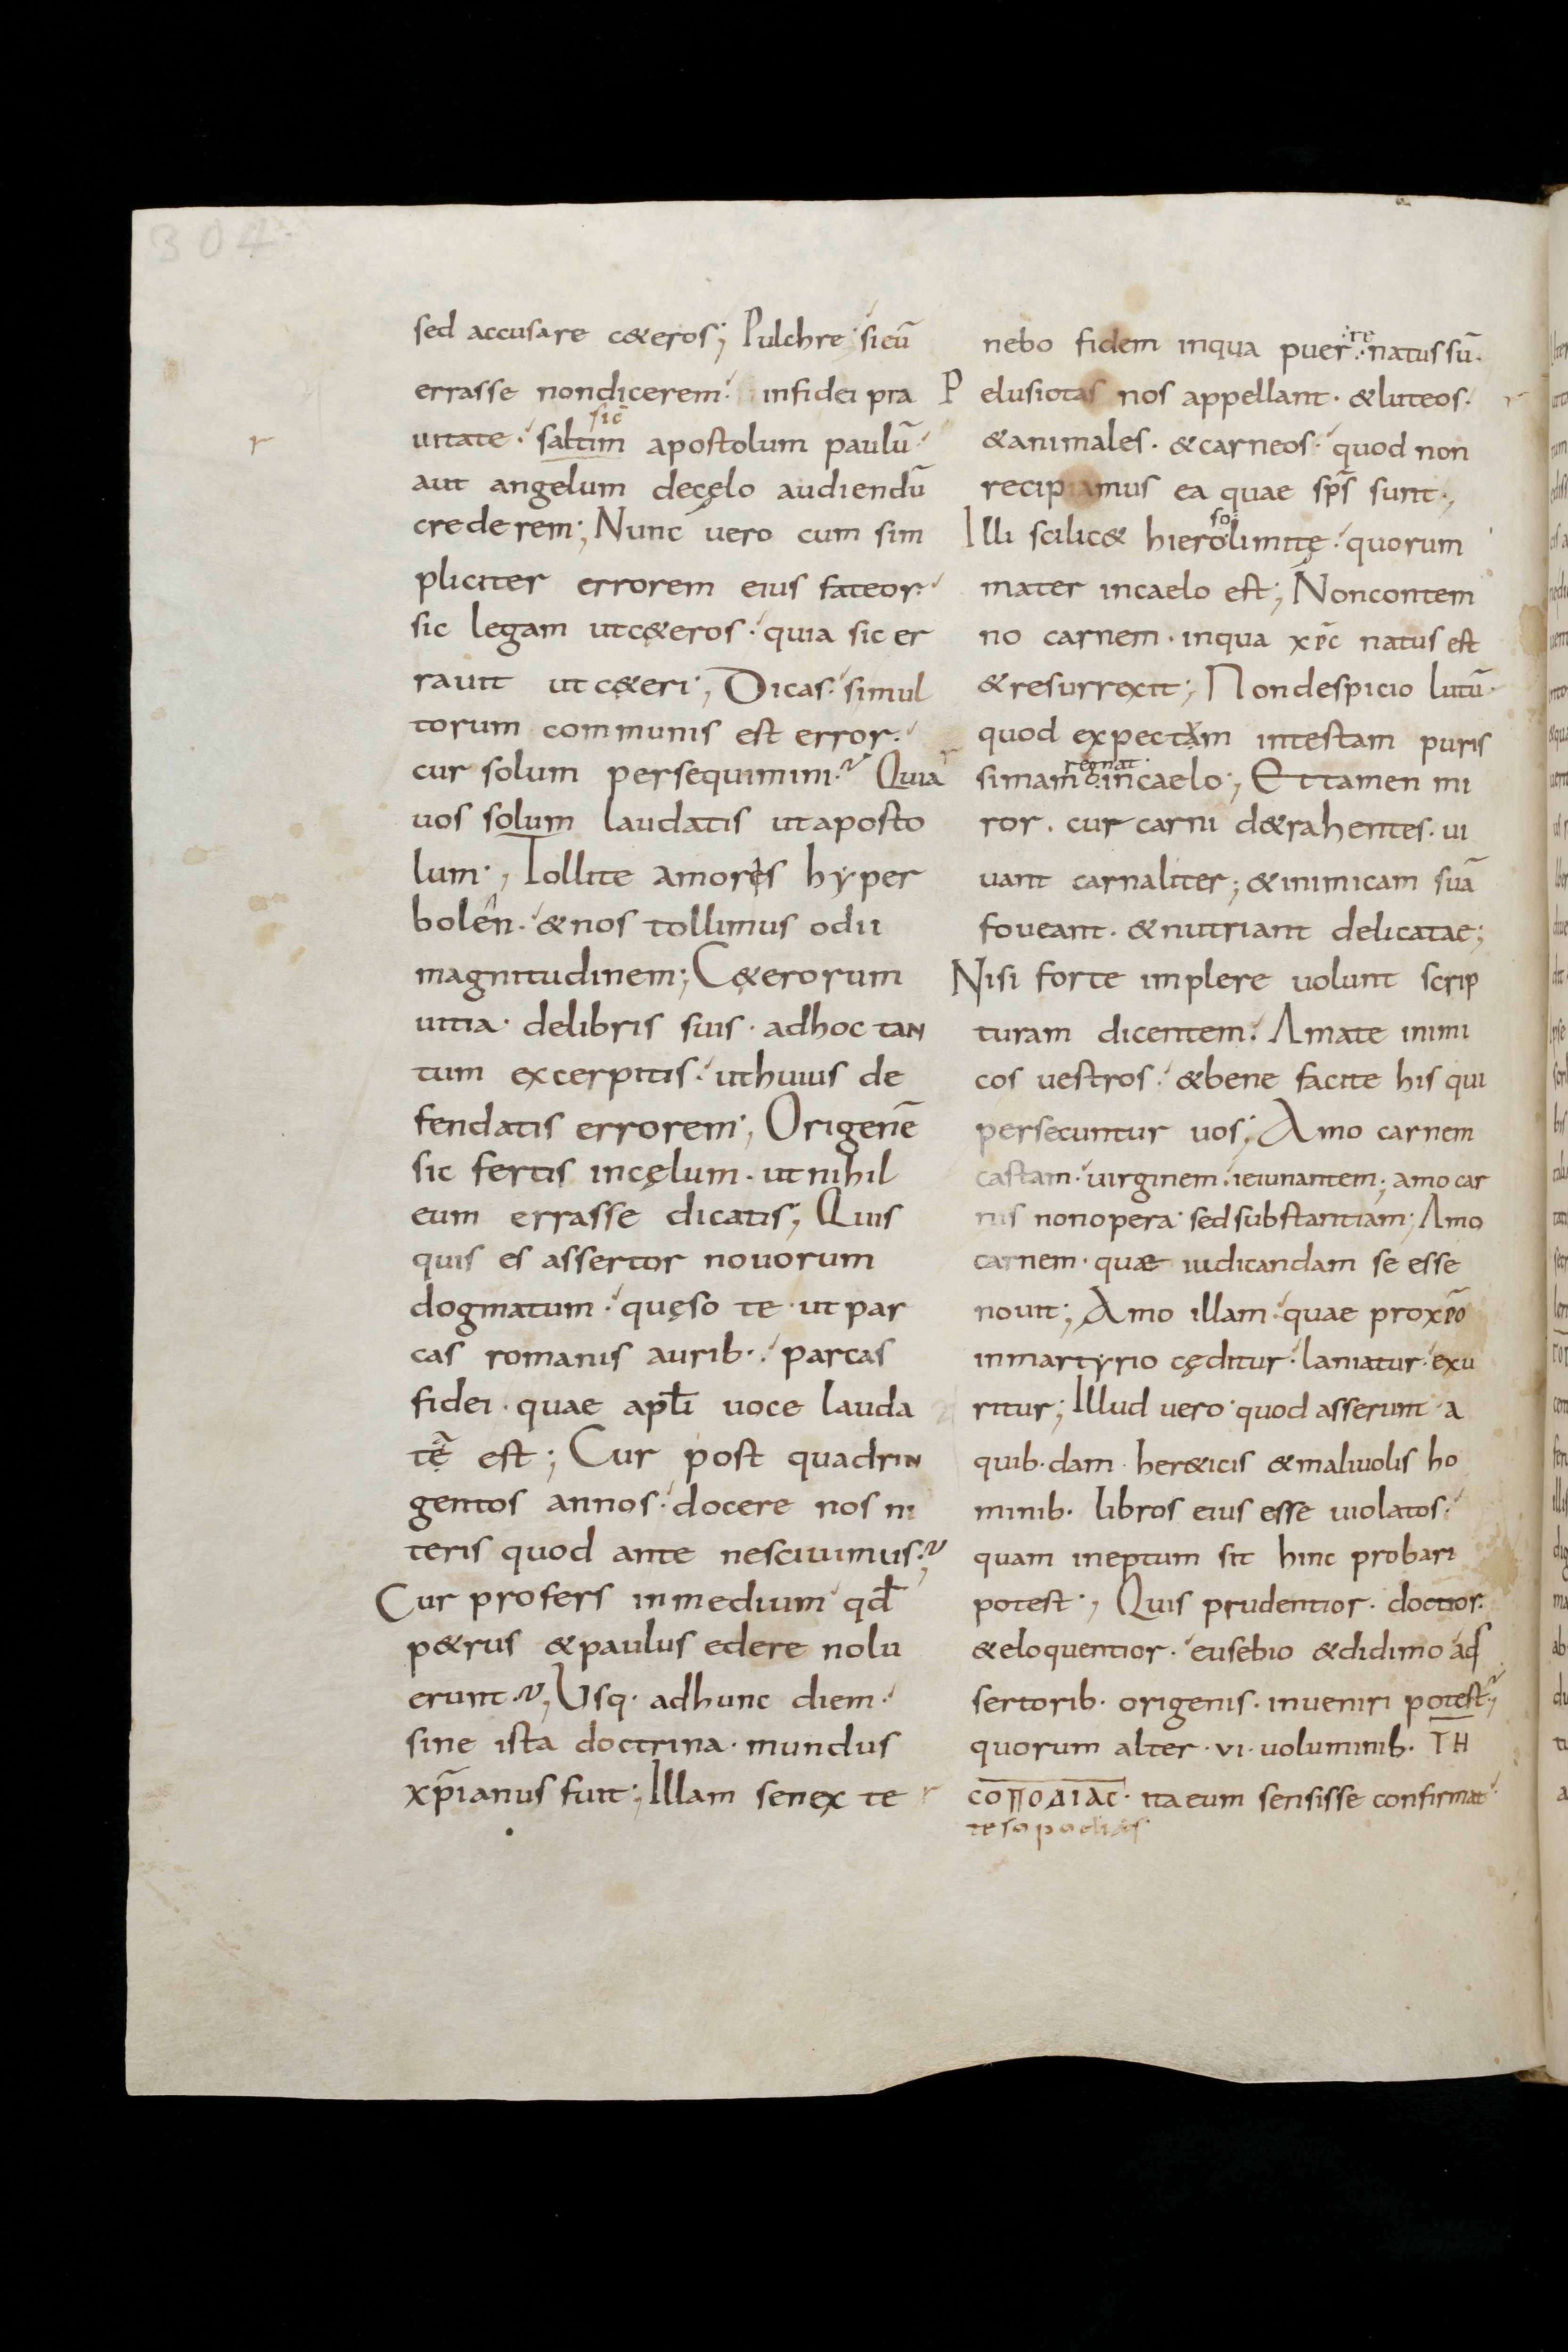 304
sed accusare c&eros; Pulchre sieū
errasse nondicerem. infidei pra
uitate. saltim apostolum paulū
sic̄
aut angelum decęlo audiendū
crederem; Nunc uero cum sim
pliciter errorem eius fateor.
sic legam utc&eros. quia sic er
rauit ut c&eri; Dicas. simul
torum communis est error.
cur solum persequimini. Quia
uos solum laudatis ut aposto
lum; Tollite amores hyper
bolen. & nos tollimus odii
magnitudinem; C&erorum
uitia. delibris suis. adhoc tan
tum excerpitis. ut huius de
fendatis errorem; Origenē
sic fertis incęlum. ut nihil
eum errasse dicatis; Quis
quis es assertor nouorum
dogmatum. quęso te. ut par
cas romanis aurib. parcas
fidei. quae apłi uoce lauda
tę est; Cur post quadrin
gentos annos. docere nos ni
teris quod ante nesciuimus;
Cur profers inmedium qđ
p&rus & paulus edere nolu
erunt; Usq. adhunc diem.
sine ista doctrina. mundus
xp̄ianus fuit; Illam senex te
nebo fidem inqua puer natus sū.
re
P elusiotas nos appellant. & luteos.
& animales. & carneos. quod non
recipiamus ea quae sp̄s sunt;
Illi scilic& hierolimitę. quorum
so
mater incaelo est; Noncontem
no carnem. inqua xp̄c natus est
& resurrexit; Nondespicio lutū.
quod expectam intestam puris
simam incaelo; Et tamen mi
regnat
ror. cur carni d&rahentes. ui
uant carnaliter; & inimicam suā
foueant. & nutriant delicatae;
Nisi forte implere uolunt scrip
turam dicentem. Amate inimi
cos uestros. & bene facite his qui
persecuntur uos; Amo carnem
castam. uirginem. ieiunantem; amo car
nis non opera. sed substantiam; Amo
carnem. quae iudicandam se esse
nouit; Amo illam. quae pro xp̄o
inmartyrio cęditur. laniatur. exu
ritur; Illud uero quod asserunt a
quib.dam. her&icis & maliuolis ho
minib. libros eius esse uiolatos.
quam ineptum sit hinc probari
potest; Quis prudentior. doctior.
& eloquentior. eusebio & didimo ad
sertorib. origenis. inueniri potest;
quorum alter. vi. uoluminib. ΤΗ
ϹΟΠΟΔΙΑϹ. ita eum sensisse confirmat.
te sopodias